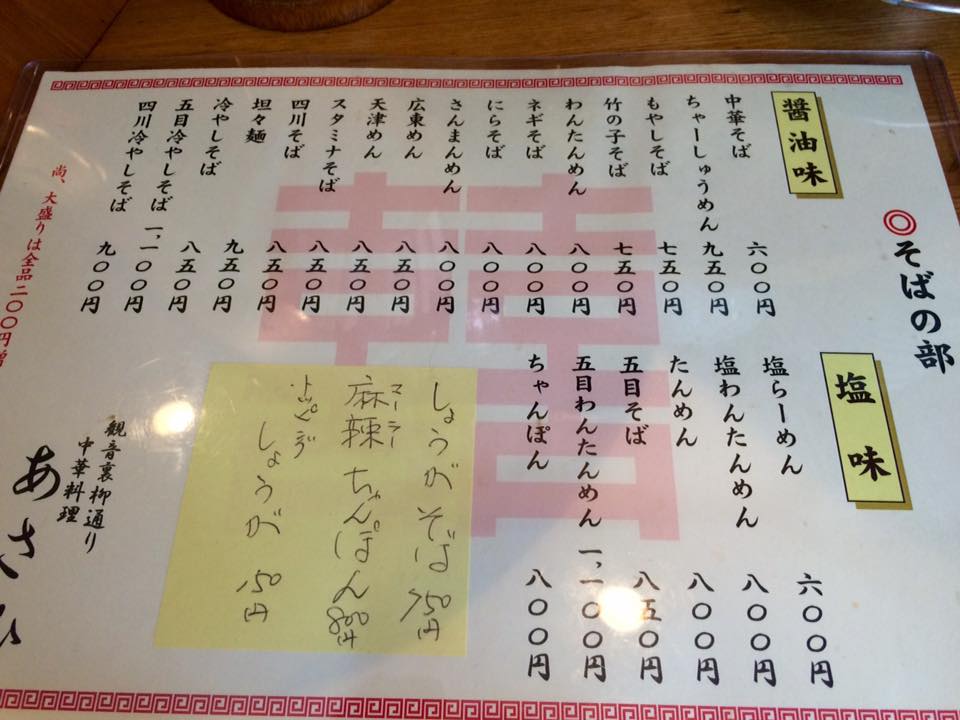 ◎そばの部
醤油味
中華そば 六〇〇円
ちゃーしゅうめん 九五〇円
もやしそば 七五〇円
竹の子そば 七五〇円
わんたんめん 八〇〇円
ネギそば 八〇〇円
にらそば 八〇〇円
さんまんめん 八〇〇円
広東めん 八五〇円
天津めん 八五〇円
スタミナそば 八五〇円
四川そば 八五〇円
坦々麺 九五〇円
冷やしそば 八五〇円
五目冷やしそば 一、一〇〇円
四川冷やしそば 九〇〇円
塩味
塩らーめん 六〇〇円
塩わんたんめん 八〇〇円
たんめん 八〇〇円
五目そば 八五〇円
五目わんたんめん 一、一〇〇円
ちゃんぽん 八〇〇円
しょうがそば 750円
マーラー
麻辣ちゃんぽん 800円
トッピング
しょうが 150円
尚、大盛りは全品二〇〇円増
観音裏柳通り
中華料理
あさひ